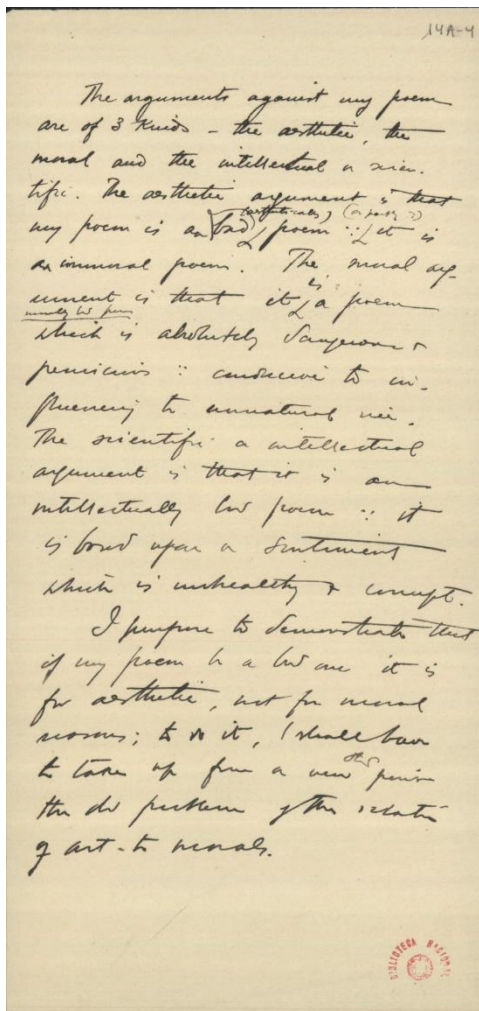 14A-4
The arguments against my poem
are of 3 kinds – the aesthetic, the
moral and the intellectual or scien-
tific. The aesthetic argument is that
my poem is a bad poem ∵ it is
an immoral poem. The moral arg-
ument is that it is a poem
which is absolutely dangerous &
pernicious ∵ conducive to in-
fluencing to unnatural vice.
The scientific or intellectual
argument is that it is an
intellectually bad poem ∵ it
is based upon a sentiment
which is unhealthy & corrupt.
I purpose to demonstrate that
if my poem be a bad one it is
for aesthetic, not for moral
reasons; to do it, I shall have
to take up from a new
the old problem of the relation
of art to morals.
BIBLIOTECA NACIONAL